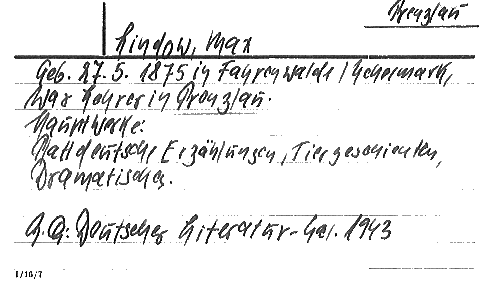 Prenzlau
Lindow, Max
Geb. 27.5. 1875 in Fahrenwalde/Uckermark,
War Lehrer in Prenzlau.
Hauptwerke:
Plattdeutsche Erzählungen, Tiergeschichten,
Dramatisches.
A.Q: Deutscher Literatur-Kal. 1943
1/10/7